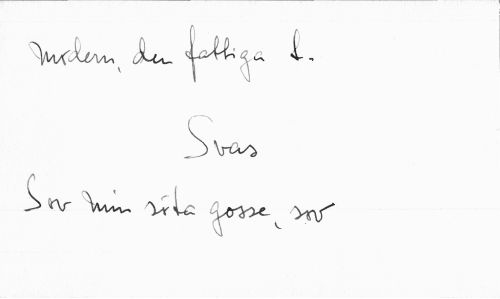 Modern, den fattiga t.
Svas
Sov min söta gosse, sov